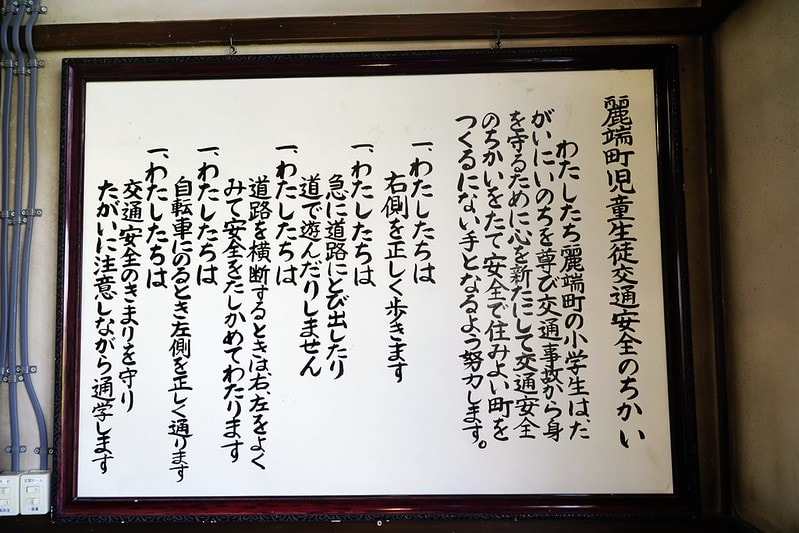 麗端町児童生徒交通安全のちかい
わたしたち麗端町の小学生は、た
がいにいのちを尊び交通事故から身
を守るために心を新たにして交通安全
のちかいをたて安全で住みよい町を
つくるにない手となるよう努力します。
一、わたしたちは
右側を正しく歩きます
一、わたしたちは
急に道路にとび出したり
道で遊んだりしません
一、わたしたちは
道路を横断するときは、右、左をよく
みて安全をたしかめてわたります
一、わたしたちは
自転車にのるとき左側を正しく通ります
一、わたしたちは
交通安全のきまりを守り
たがいに注意しながら通学します